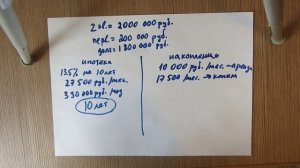 2 кв. = 2000 000 руб.
перв. = 200 000 руб.
долг = 1 800 000 руб.
ипотека
13.5% на 10 лет
27 500 руб./мес.
330 000 руб./год
10 лет
накопления
10 000 руб./мес. → аренда
17 500 /мес. → копим